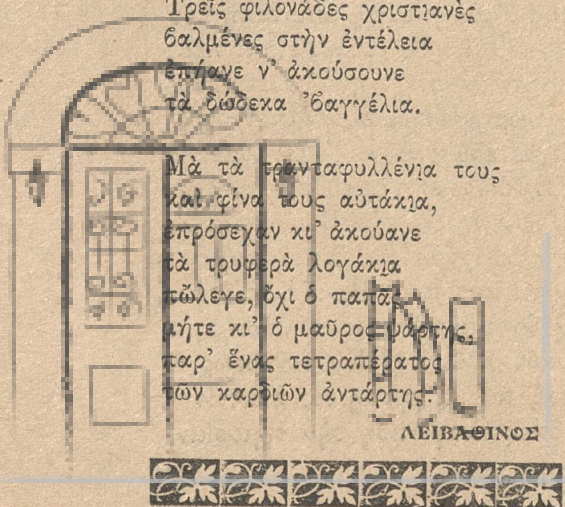 Τρεῖς φιλονάδες χριστιανὲς
βαλμένες στὴν ἐντέλεια
ἐπήανε ν' ἀκούσουνε
τὰ δώδεκα 'βαγγέλια.
Μὰ τὰ τρανταφυλλένια τους
καὶ φίνα τους αὐτάκια,
ἐπρόσεχαν κι' ἀκούανε
τὰ τρυφερὰ λογάκια
πὤλεγε, ὄχι ὁ παπᾶς,
μήτε κι' ὁ μαῦρος ψάρτης,
παρ' ἕνας τετραπέρατος
τῶν καρδιῶν ἀντάρτης.
ΛΕΙΒΑΘΙΝΟΣ